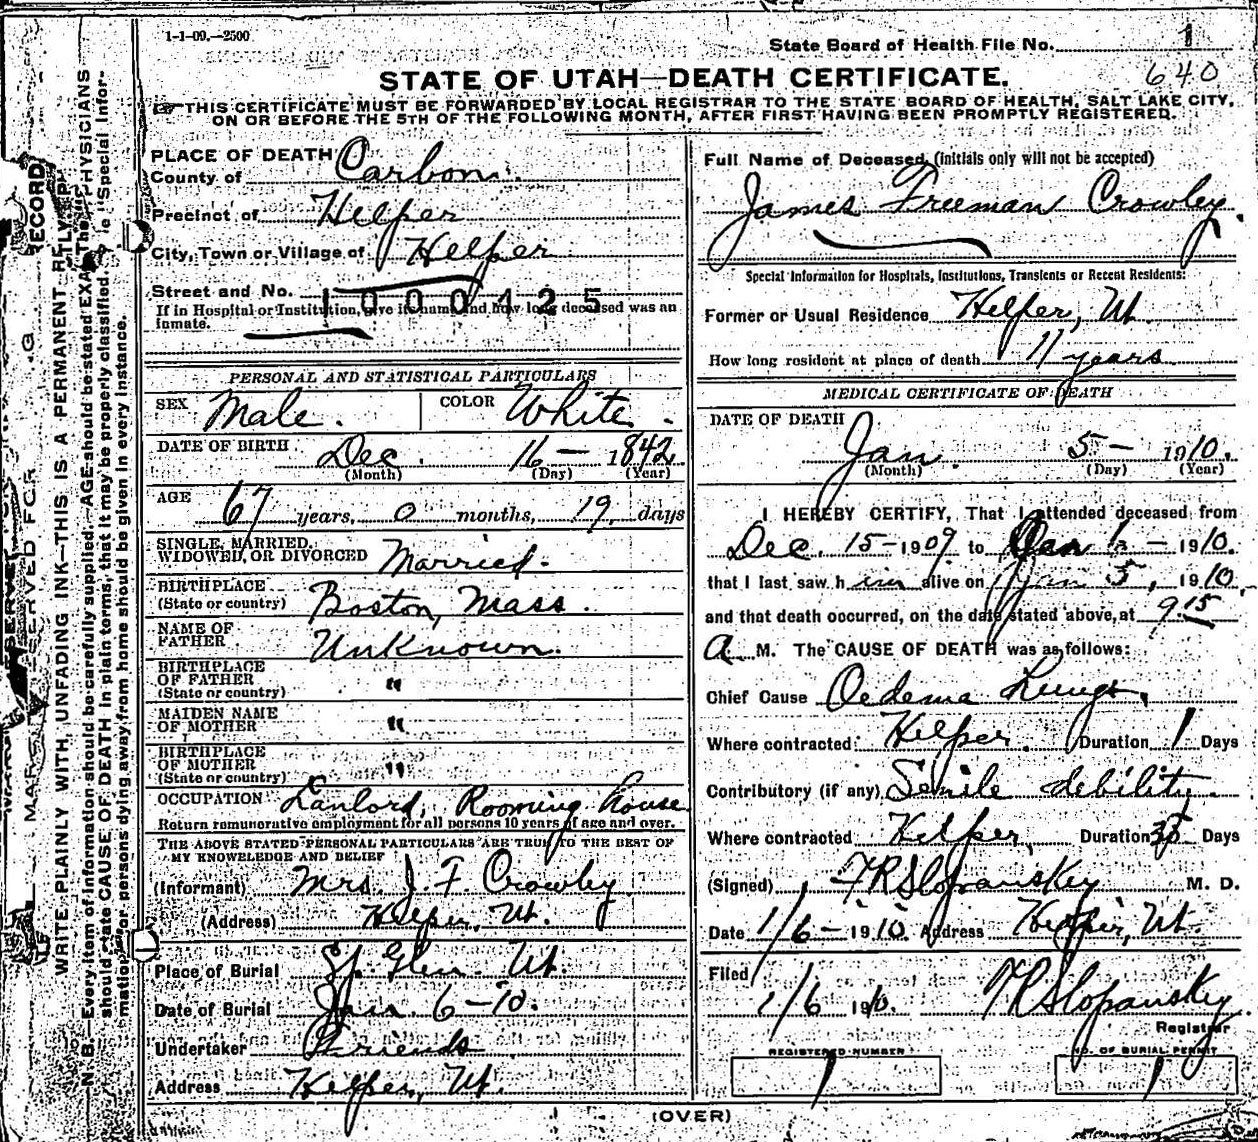 1-1-09.—2500
State Board of Health File No. 1
640
STATE OF UTAH—DEATH CERTIFICATE.
THIS CERTIFICATE MUST BE FORWARDED BY LOCAL REGISTRAR TO THE STATE BOARD OF HEALTH, SALT LAKE CITY,
ON OR BEFORE THE 5TH OF THE FOLLOWING MONTH, AFTER FIRST HAVING BEEN PROMPTLY REGISTERED.
PLACE OF DEATH
County of Carbon.
Precinct of Helper
City, Town or Village of Helper
Street and No.
1000425
If in Hospital or Institution, give its name and how long deceased was an
inmate.
PERSONAL AND STATISTICAL PARTICULARS
SEX Male. COLOR White.
DATE OF BIRTH Dec. 16— 1842
(Month) (Day) (Year)
AGE 67 years, 0 months, 19 days
SINGLE, MARRIED,
WIDOWED, OR DIVORCED Married.
BIRTHPLACE
(State or country) Boston, Mass.
NAME OF
FATHER Unknown.
BIRTHPLACE
OF FATHER "
(State or country)
MAIDEN NAME
OF MOTHER "
BIRTHPLACE
OF MOTHER "
(State or country)
OCCUPATION Lanlord, Rooming house
Return remunerative employment for all persons 10 years of age and over.
THE ABOVE STATED PERSONAL PARTICULARS ARE TRUE TO THE BEST OF
MY KNOWLEDGE AND BELIEF
(Informant) Mrs. J. F. Crowley
(Address) Helper, Ut.
Place of Burial Sp. Glen. Ut.
Date of Burial Jan. 6—10.
Undertaker Friends
Address Helper, Ut.
Full Name of Deceased (initials only will not be accepted)
James Freeman Crowley.
Special Information for Hospitals, Institutions, Transients or Recent Residents:
Former or Usual Residence Helper, Ut.
How long resident at place of death 11 years
MEDICAL CERTIFICATE OF DEATH
DATE OF DEATH
Jan. 5— 1910.
(Month) (Day) (Year)
I HEREBY CERTIFY, That I attended deceased from
Dec. 15—1909 to Jan — 1910.
that I last saw him alive on Jan 5, 1910
and that death occurred, on the date stated above, at 9.15
A M. The CAUSE OF DEATH was as follows:
Chief Cause Oedema Lungs
Where contracted Helper. Duration 1 Days
Contributory (if any) Senile debility.
Where contracted Helper, Duration Days
(Signed) F R Slopanskey M. D.
Date 1/6—1910. Address Helper, Ut.
Filed
1/6 1910. F R Slopanskey
Registrar
REGISTERED NUMBER
1
NO. OF BURIAL PERMIT
1
(OVER)
WRITE PLAINLY WITH UNFADING INK—THIS IS A PERMANENT RECORD
N. B.—Every item of information should be carefully supplied. AGE should be stated EXACTLY. PHYSICIANS
should state CAUSE OF DEATH in plain terms, that it may be properly classified. The "Special Infor-
mation" for persons dying away from home should be given in every instance.